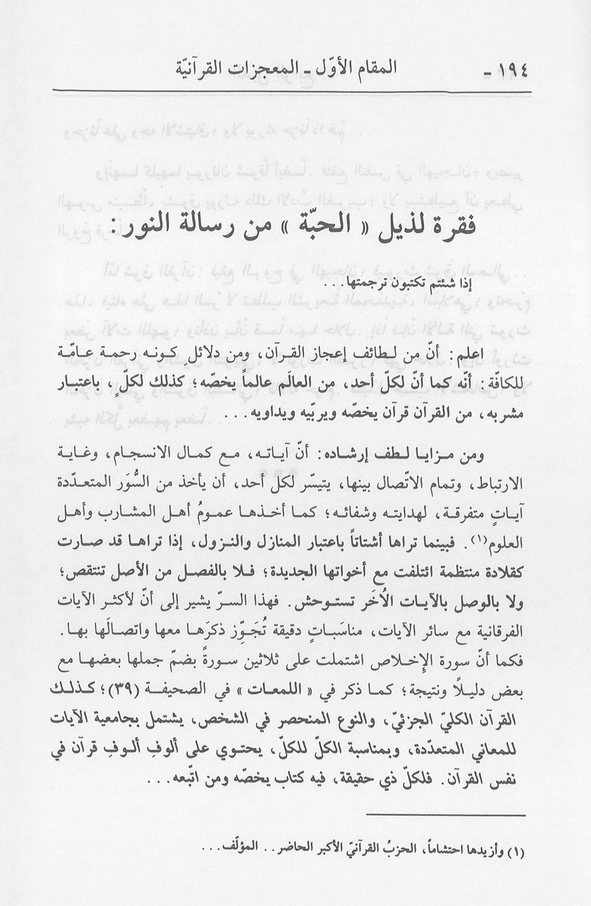 ١٩٤ - المقام الأوّل - المعجزات القرآنيّة
فقرة لذيل « الحبّة » من رسالة النور :
إذا شئتم تكتبون ترجمتها . . .
اعلم : أنّ من لطائف إعجاز القرآن، ومن دلائلِ كونه رحمة عامّة
للكافّة : أنّه كما أنّ لكلّ أحد، من العالَم عالماً يخصّه ؛ كذلك لكلٍّ، باعتبار
مشربه، من القرآن قرآن يخصّه ويربّيه ويداويه . . .
ومن مزايا لطف إرشاده : أنّ آياته، مع كمال الانسجام، وغاية
الارتباط، وتمام الاتّصال بينها، يتيسّر لكل أحد، أن يأخذ من السُّوَر المتعدّدة
آياتٍ متفرقة، لهدايته وشفائه ؛ كما أخذها عمومُ أهل المشارب وأهل
العلوم(١). فبينما تراها أشتاتاً باعتبار المنازل والنزول، إذا تراها قد صارت
كقلادة منتظمة ائتلفت مع أخواتها الجديدة ؛ فلا بالفصل من الأصل تنتقص ؛
ولا بالوصل بالآيات الأُخَر تستوحش. فهذا السرّ يشير إلى أنّ لأكثر الآيات
الفرقانية مع سائر الآيات، مناسَباتٍ دقيقة تُجَوِّز ذكرَها معها واتصالَها بها.
فكما أنّ سورة الإخلاص اشتملت على ثلاثين سورةً بضمّ جملها بعضها مع
بعض دليلاً ونتيجة ؛ كما ذكر في « اللمعات » في الصحيفة (٣٩) ؛ كذلك
القرآن الكليّ الجزئيّ، والنوع المنحصر في الشخص، يشتمل بجامعية الآيات
للمعاني المتعدّدة، وبمناسبة الكلّ للكلّ، يحتوي على ألوفِ ألوفِ قرآن في
نفس القرآن. فلكلّ ذي حقيقة، فيه كتاب يخصّه ومن اتّبعه . . .
(١) وأزيدها احتشاماً، الحزبُ القرآنيّ الأكبر الحاضر . . المؤلّف . . .